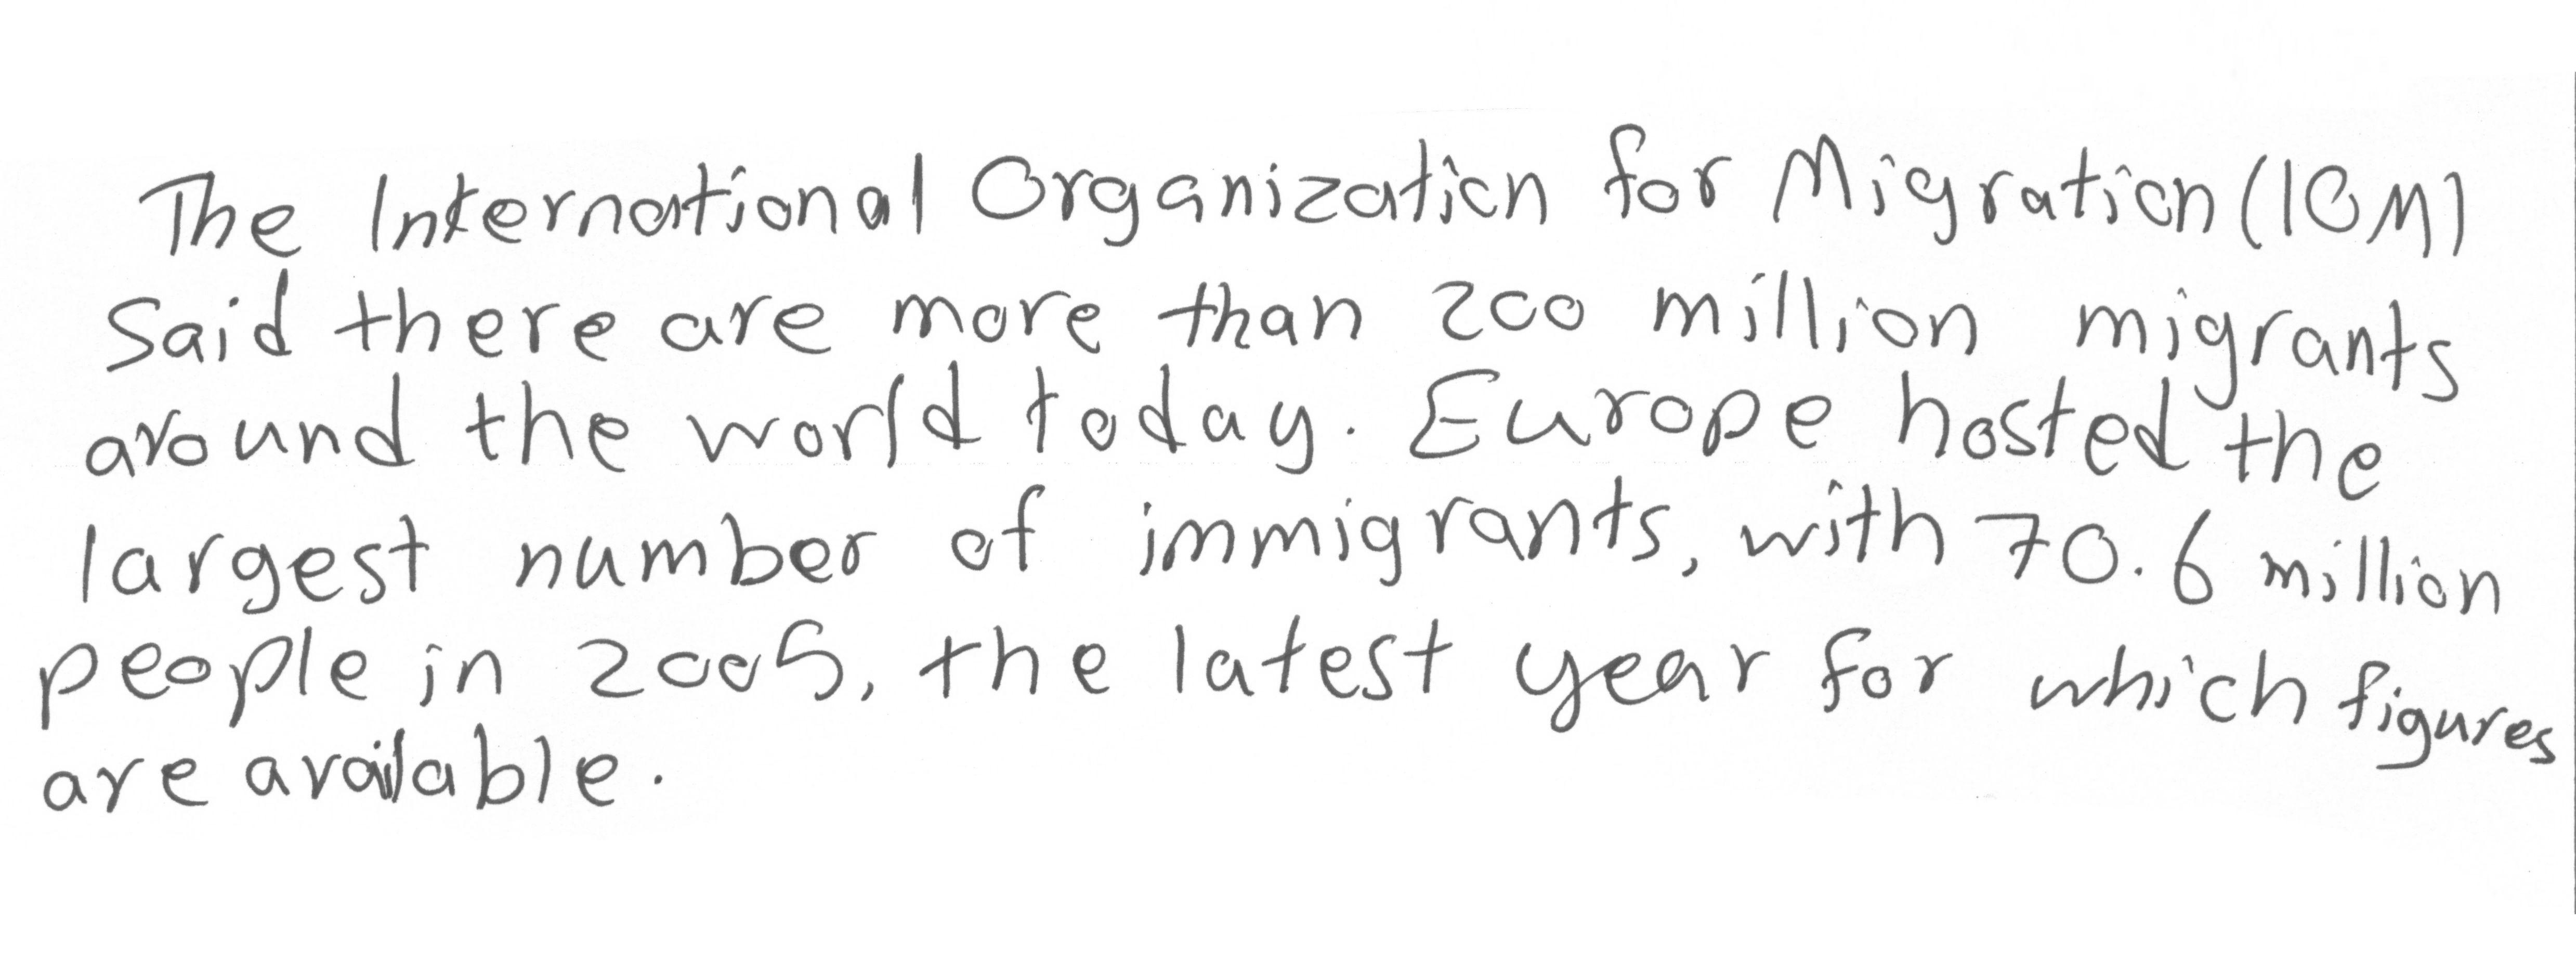 The International Organization for Migration (IOM)
Said there are more than 200 million migrants
around the world today. Europe hosted the
largest number of immigrants, with 70.6 million
people in 2005, the latest year for which figures
are available.